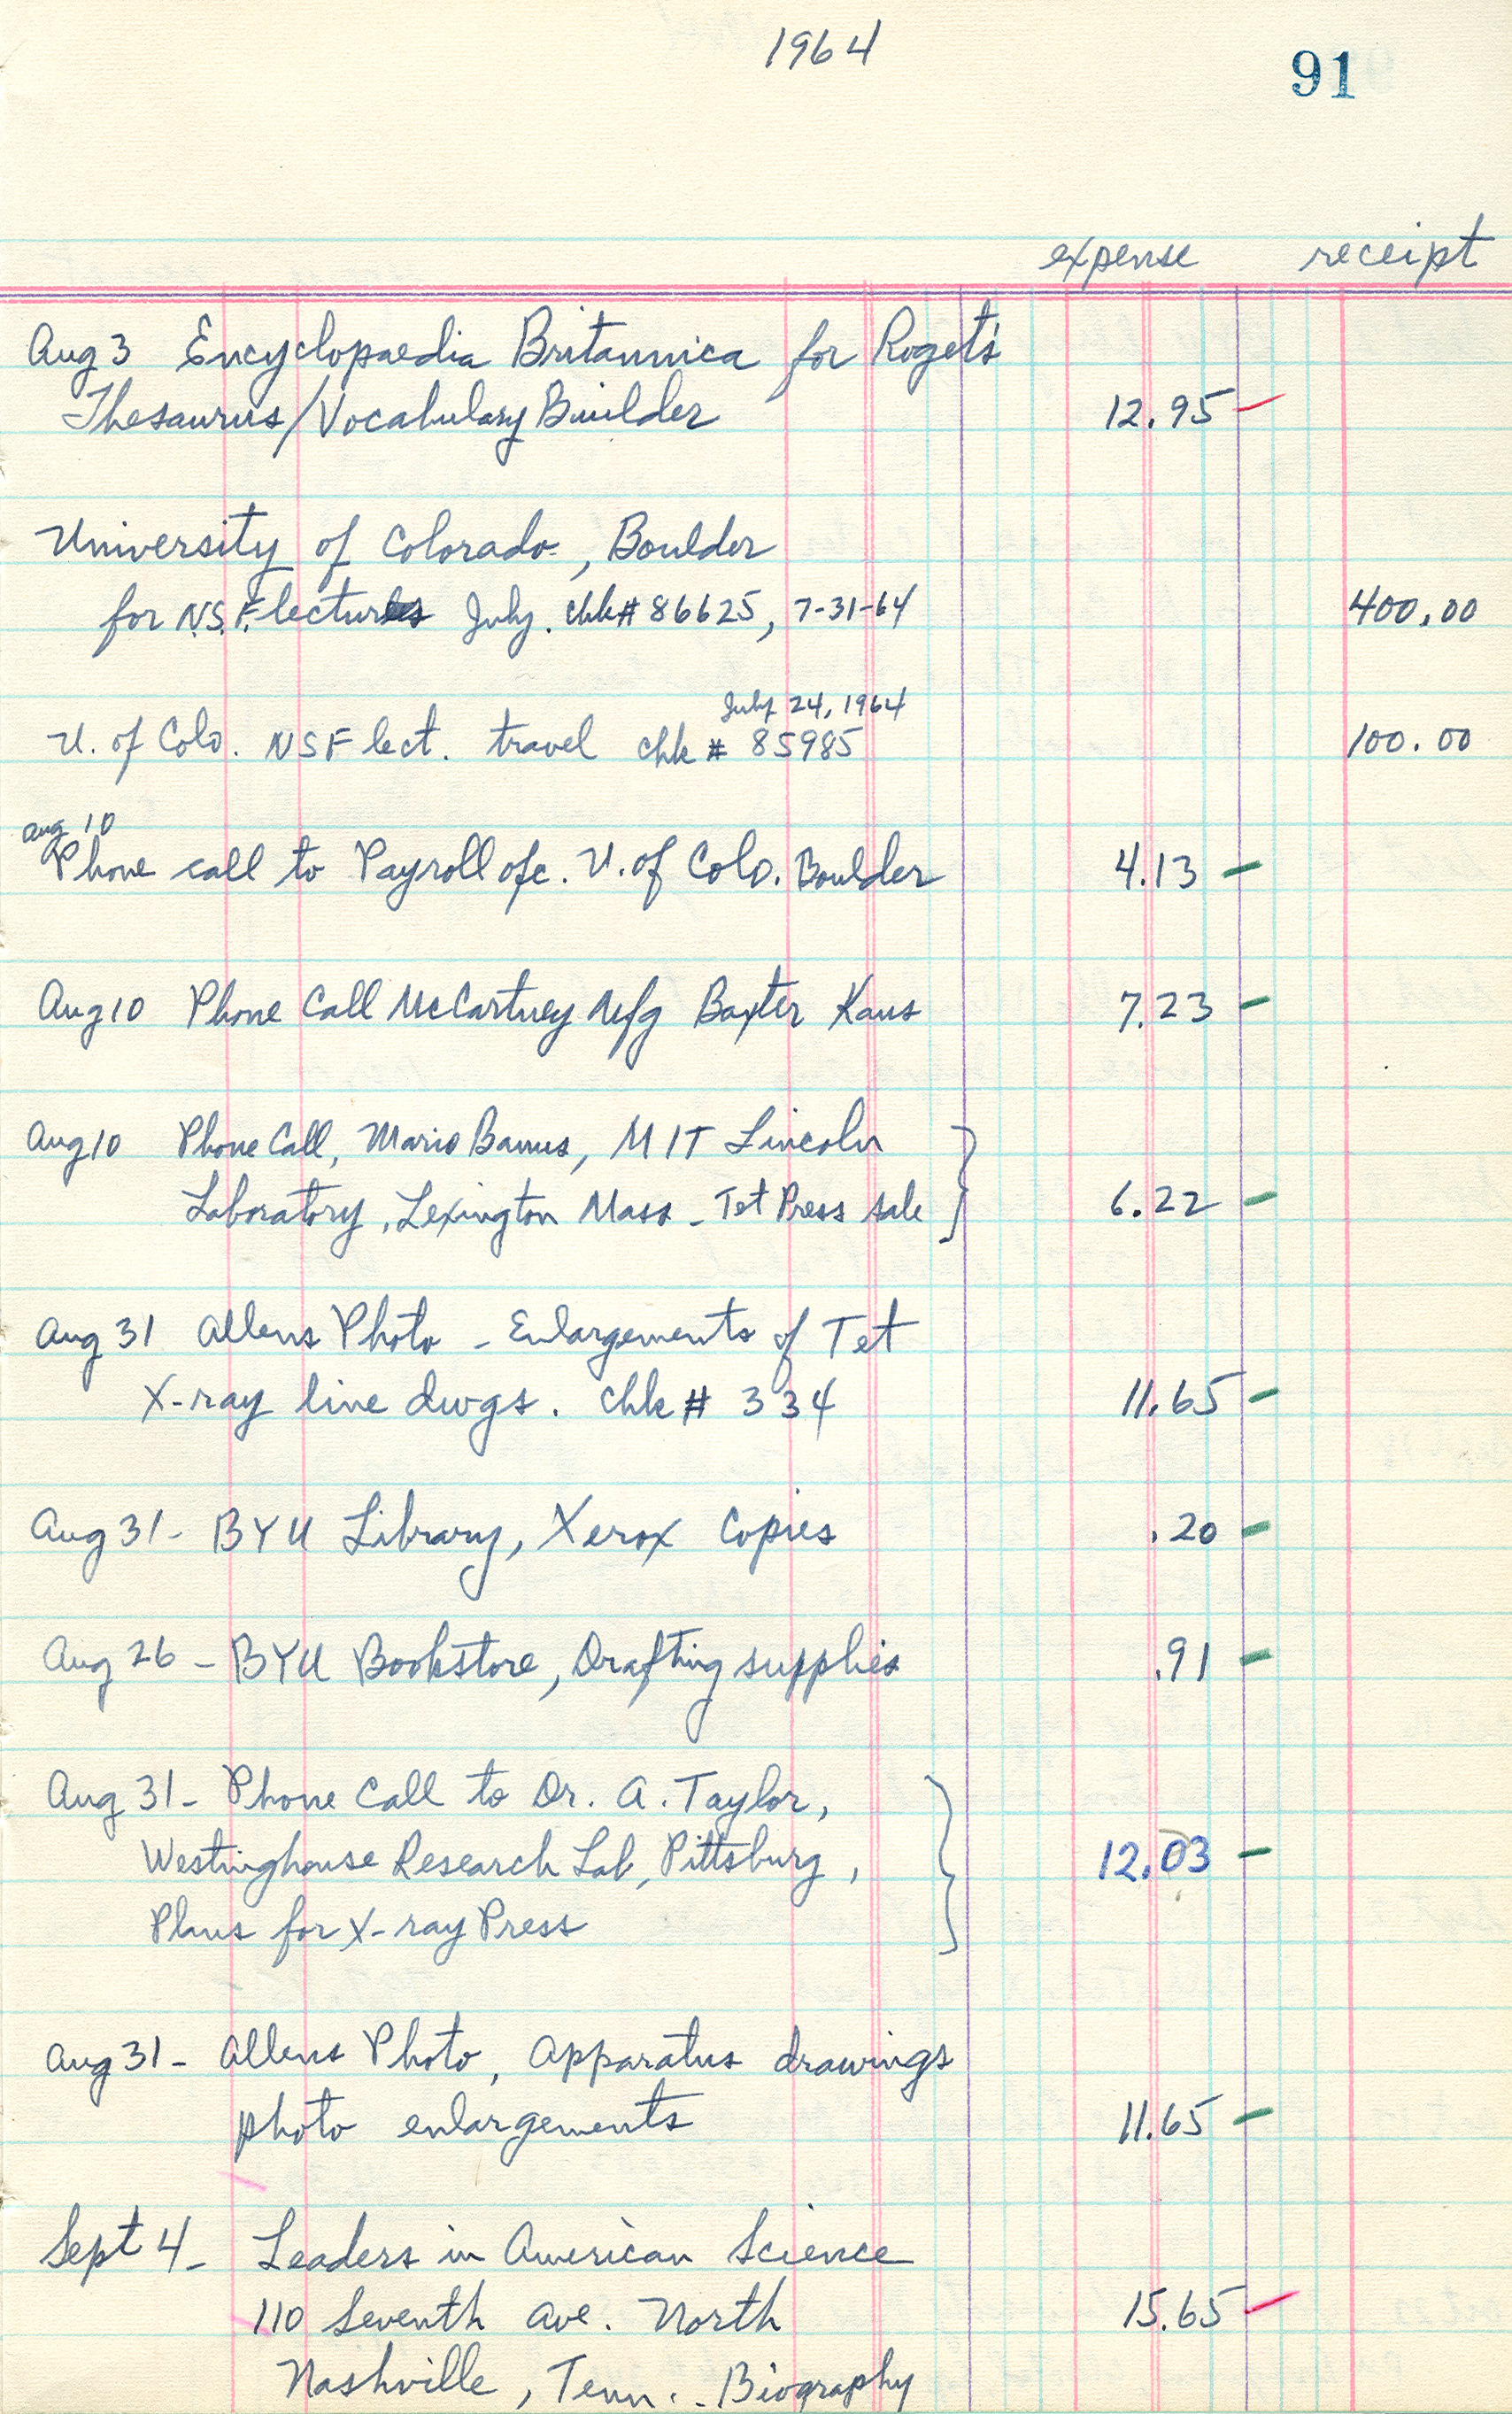 1964
91
expense receipt
Aug 3 Encyclopaedia Britannica for Roget's
Thesaurus/Vocabulary Builder 12.95
University of Colorado, Boulder
for N.S.F. lectures July. chk# 86625, 7-31-64 400.00
July 24, 1964
U. of Colo. NSF lect. travel chk # 85985 100.00
Aug 10
Phone call to Payroll ofc. U. of Colo. Boulder 4.13
Aug 10 Phone Call McCartney Mfg Baxter Kans 7.23
Aug 10 Phone Call, Mario Banus, MIT Lincoln
Laboratory, Lexington Mass - Tet Press sale 6.22
Aug 31 Allens Photo - Enlargements of Tet
X-ray line dwgs. chk # 334 11.65
Aug 31 - BYU Library, Xerox Copies .20
Aug 26 - BYU Bookstore, Drafting supplies .91
Aug 31 - Phone Call to Dr. A. Taylor,
Westinghouse Research Lab, Pittsburg, 12.03
Plans for X-ray Press
Aug 31 - Allens Photo, Apparatus drawings
photo enlargements 11.65
Sept 4 - Leaders in American Science
110 Seventh Ave. North 15.65
Nashville, Tenn. - Biography